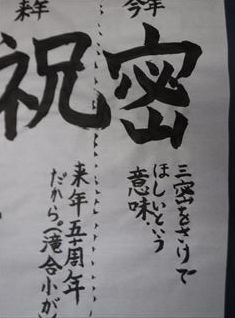 今年
密
三密をさけて
ほしいという
意味。
来年
祝
来年五十周年
だから。(滝合小が)